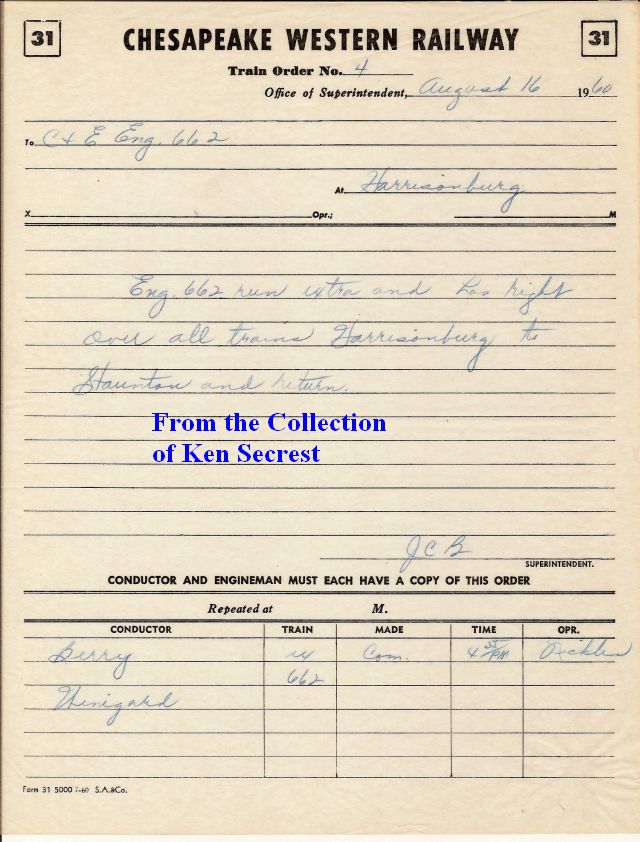 31 CHESAPEAKE WESTERN RAILWAY 31
Train Order No. 4
Office of Superintendent, August 16 1960
To C & E Eng. 662
At Harrisonburg
X Opr.; M
Eng. 662 run extra and has right
over all trains Harrisonburg to
Staunton and return.
From the Collection
of Ken Secrest
J C B
SUPERINTENDENT.
CONDUCTOR AND ENGINEMAN MUST EACH HAVE A COPY OF THIS ORDER
Repeated at M.
CONDUCTOR TRAIN MADE TIME OPR.
Berry ex Com. PM
662
Form 31 5000 7-60 S.A.&Co.